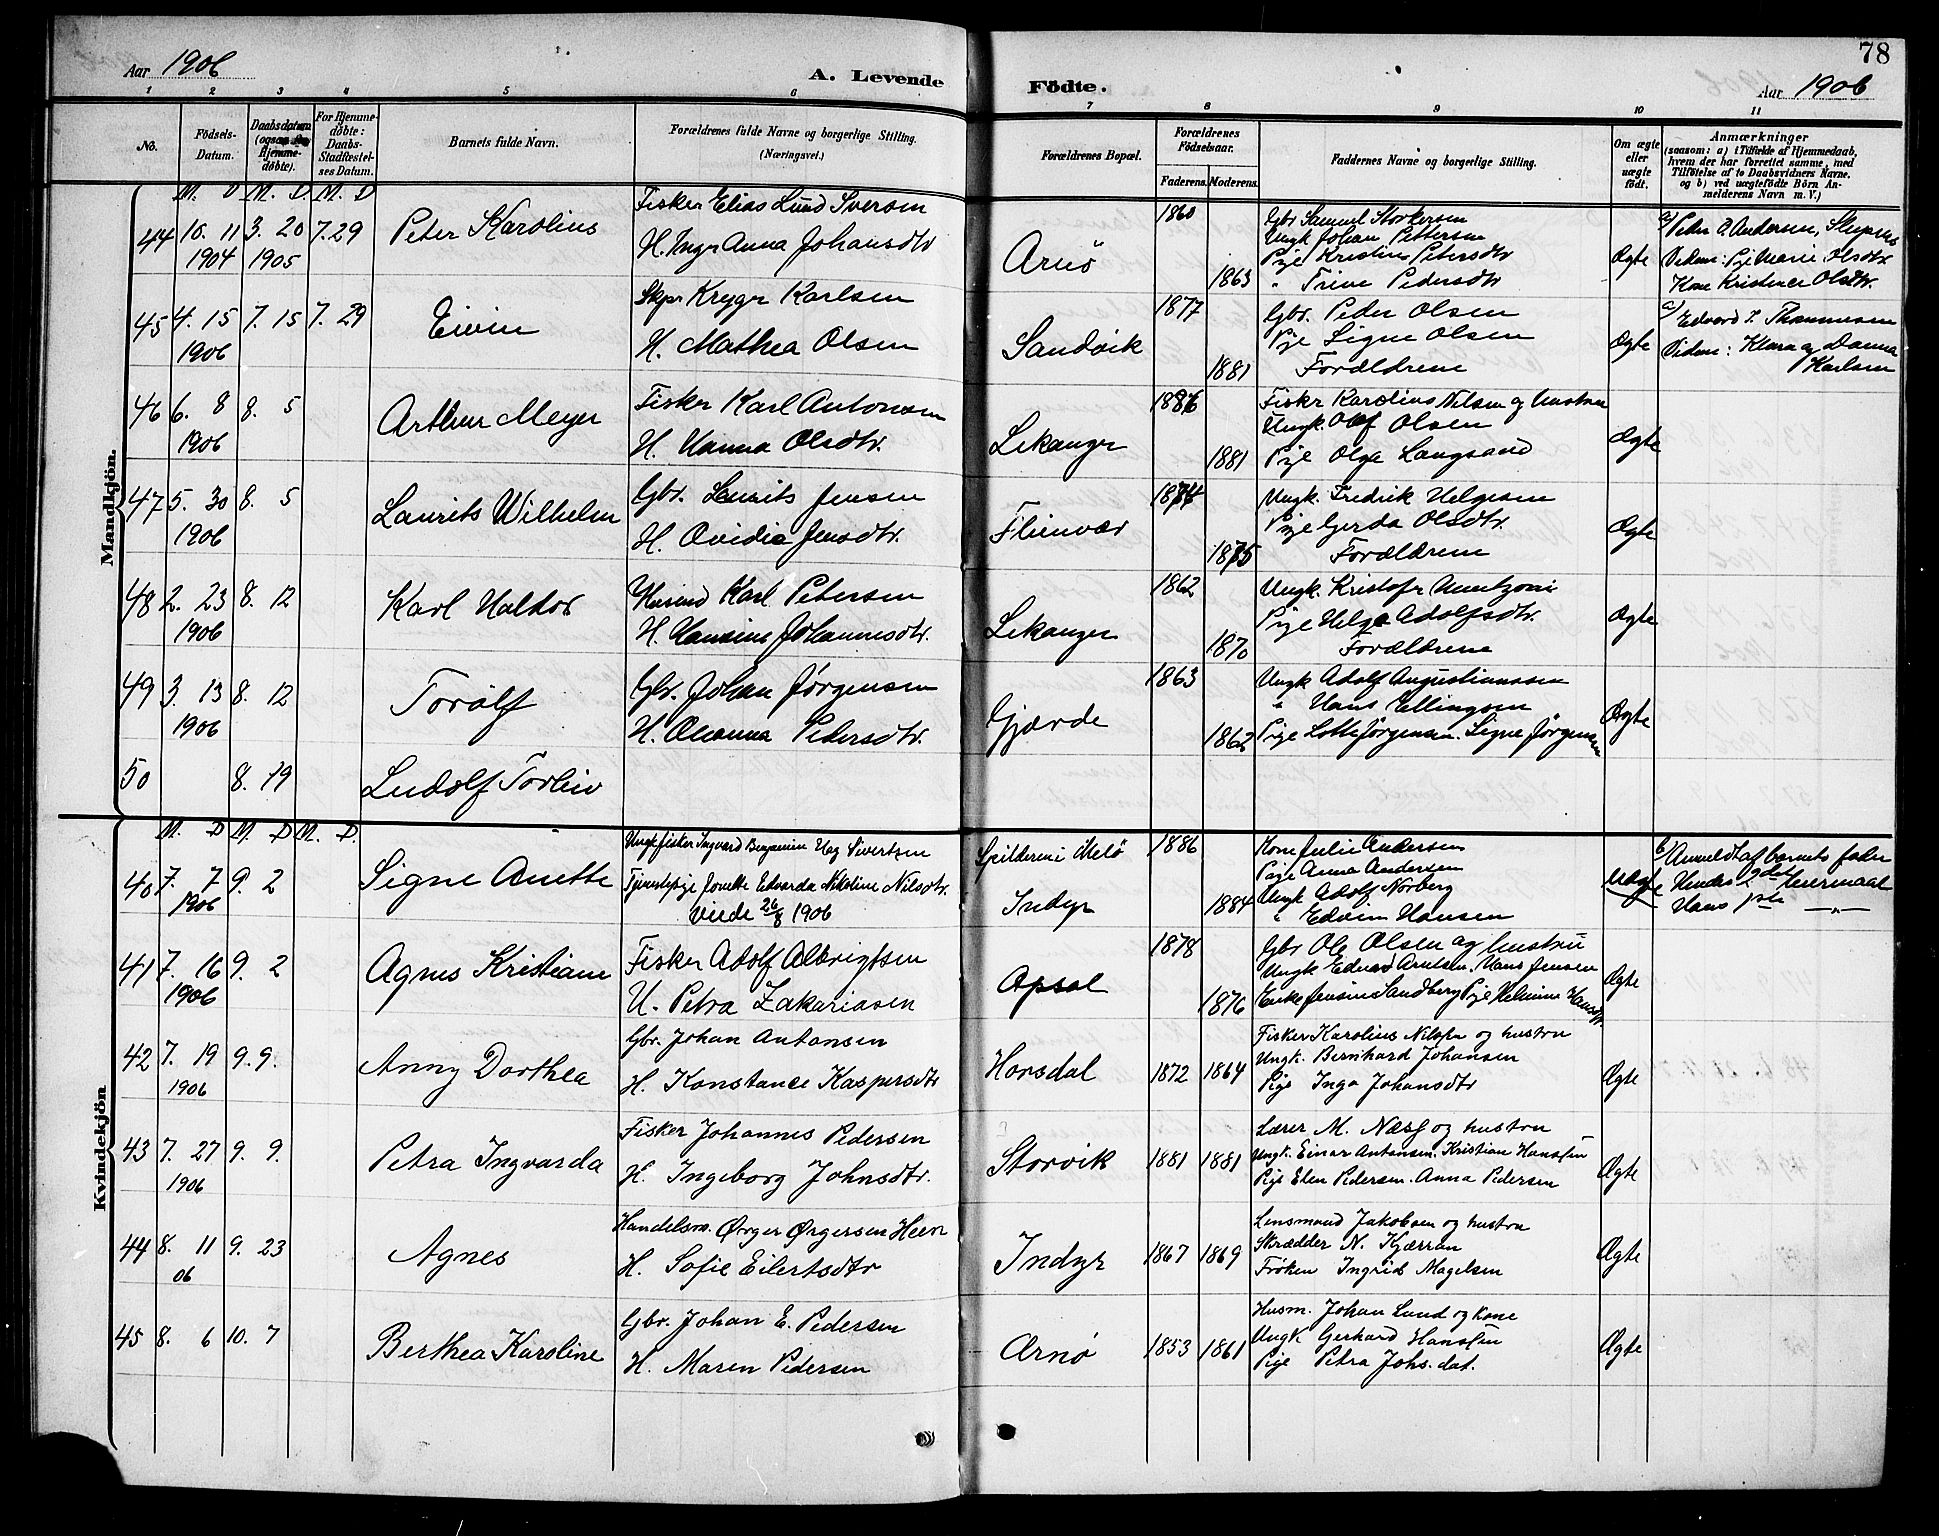 78
Aar 1906
A. Levende
Fødte.
Aar 1906
1 2 3 4 5 6 7 8 9 10 11
No.
Fødsels-
Datum.
Daabsdatum
Hjemme-
døbte).
For Hjemme-
døbte:
Daabs-
Stadfæstel-
ses Datum.
Barnets fulde Navn.
Forældrenes fulde Navne og borgerlige Stilling.
(Næringsvei.)
Forældrenes Bopæl.
Forældrenes
Fødselsaar.
Faderens. Moderens.
Faddernes Navne og borgerlige Stilling.
Om ægte
eller
uægte
født.
Anmærkninger
(saasom: a) i Tilfælde af Hjemmedaab,
hvem der har forrettet samme, med
Tilføielse af to Daabsvidners Navne,
og b) ved uægtefødte Børn An-
melderens Navn m. V.)
Mandkjön.
M. D M. D. M. D
44 10. 11 3. 20 7. 29
1904 1905
Peter Karolius
Fisker Elias Lund Iversen
H. Inger Anna Johansdtr
Arnø
1860
1863
Gbr Samuel Storkersen
Ungk Johan Pettersen
Pige Kristine Petersdtr
" Trine Pedersdtr
Ægte
a/ Peder A. Andersen,
Vidner: Pige Marie Olsdtr.
Kone Kristence Olsdtr.
45 4. 15 7. 15 7. 29
1906
Eivin
Skpr Kryger Karlsen
H. Mathea Olsen
Sandvik
1877
1881
Gbr. Peder Olsen
Pige Signe Olsen
Forældrene
Ægte
a/ Edvard
Vidner: Klara og Danna
Karlsen
46 6. 8 8. 5
1906
Arthur Meyer
Fisker Karl Antonsen
H. Hanna Olsdtr.
Lekanger
1881
Fiskr Karolius Nilsen og hustru
Ungk. Olaf Olsen
Pige Olga Langsand
Ægte
47 5. 30 8. 5
1906
Laurits Wilhelm
Gbr. Laurits Jensen
H. Ovidia Jensdtr.
Fleinvær
1874
1875
Ungk. Fredrik Helgesen
Pige Gerda Olsdtr.
Forældrene
Ægte
48 2. 23 8. 12
1906
Karl Haldor
Husmd Karl Petersen
H. Hansine Johannesdtr.
Lekanger
1862
1870
Ungk. Kristofr
Pige Helga Adolfsdtr.
Forældrene
Ægte
49 3. 13 8. 12
1906
Torolf
Gbr. Johan Jørgensen
H. Oleanna Pedersdtr.
Gjærde
1863
1862
Ungk Adolf Augustianssen
" Hans Ellingsen
Pige Lotte Jørgensen. Signe Jørgensen
Ægte
50 8. 19
Ludolf Torleiv
Kvindekjön
M. D M. D M. D.
40 7. 7 9. 2
1906
Signe Anette
Ungk fisker Ingvard Benjamin Hag Sivertsen
Tjenestepige Jonette Edvarda Nikoline Nilsdtr.
Viede 26/8 1906
Spilderen i Melø
Indyr
1886
1884
Kone Julie Andersen
Pige Anna Andersen
Ungk Adolf Norberg
" Edvin Hansen
Uægte
b/ Anmeldt af barnets fader
Hendes 2det leiermaal
Hans 1ste —"—
41 7. 16 9. 2
1906
Agnes Kristiane
Fisker Adolf Albrigtsen
H. Petra Zakariasen
Opsal
1878
1876
Gbr Ole Olsen og hustru
Ungk Edvard Arntsen. Hans Jensen
Enke Jensine Sandberg Pige Helmine Hansdtr.
Ægte
42 7. 19 9. 9.
1906
Anny Dorthea
Gbr. Johan Antonsen
H. Konstance Kaspersdtr
Horsdal
1872 1864
Fisker Karolius Nilssen og hustru
Ungk. Bernhard Johansen
Pige Inga Johansdtr
Ægte
43 7. 27 9. 9.
1906
Petra Ingvarda
Fisker Johannes Pedersen
H. Ingeborg Johnsdtr.
Storvik
1881 1881
Lærer M. Næss og hustru
Ungk. Einar Antonsen. Kristian Hanssen
Pige Elen Pedersen. Anna Pedersen
Ægte
44 8. 11 9. 23
06
Agnes
Handelsm. Ørger Ørgersen Heen
H. Sofie Eilertsdtr
Indyr
1867 1869
Lensmand Jakobsen og hustru
Skrædder N. Kjærran
Frøken Ingrid Magelsen
Ægte
45 8. 6 10. 7
Berthea Karoline
Gbr. Johan E. Pedersen
H. Maren Pedersen
Arnø
1853 1861
Husm. Johan Lund og kone
Ungk Gerhard Hanssen
Pige Petra Johs. dat.
Ægte